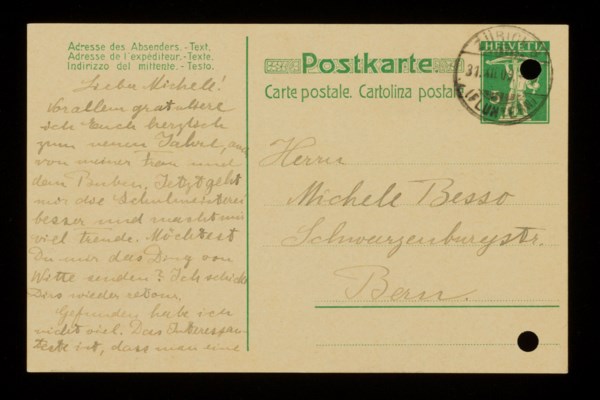 Adresse des Absenders.-Text.
Adresse de l'expéditeur.-Texte.
Indirizzo del mittente.-Testo.
Lieber Michele!
Vor allem gratuliere
ich Euch herzlich
zum neuen Jahre, auch
von meiner Frau und
dem Buben. Jetzt geht
mir die Schulmeisterei
besser und macht mir
viel Freude. Möchtest
Du mir das Ding von
Witte senden? Ich schicke
Dirs wieder retour.
Gefunden habe ich
nicht viel. Das Interessan-
teste ist, dass man eine
Postkarte
Carte postale. Cartolina postale
ZÜRICH
31.XII.09
(FLUNTERN)
HELVETIA
Herrn
Michele Besso
Schwarzenburgstr.
Bern.